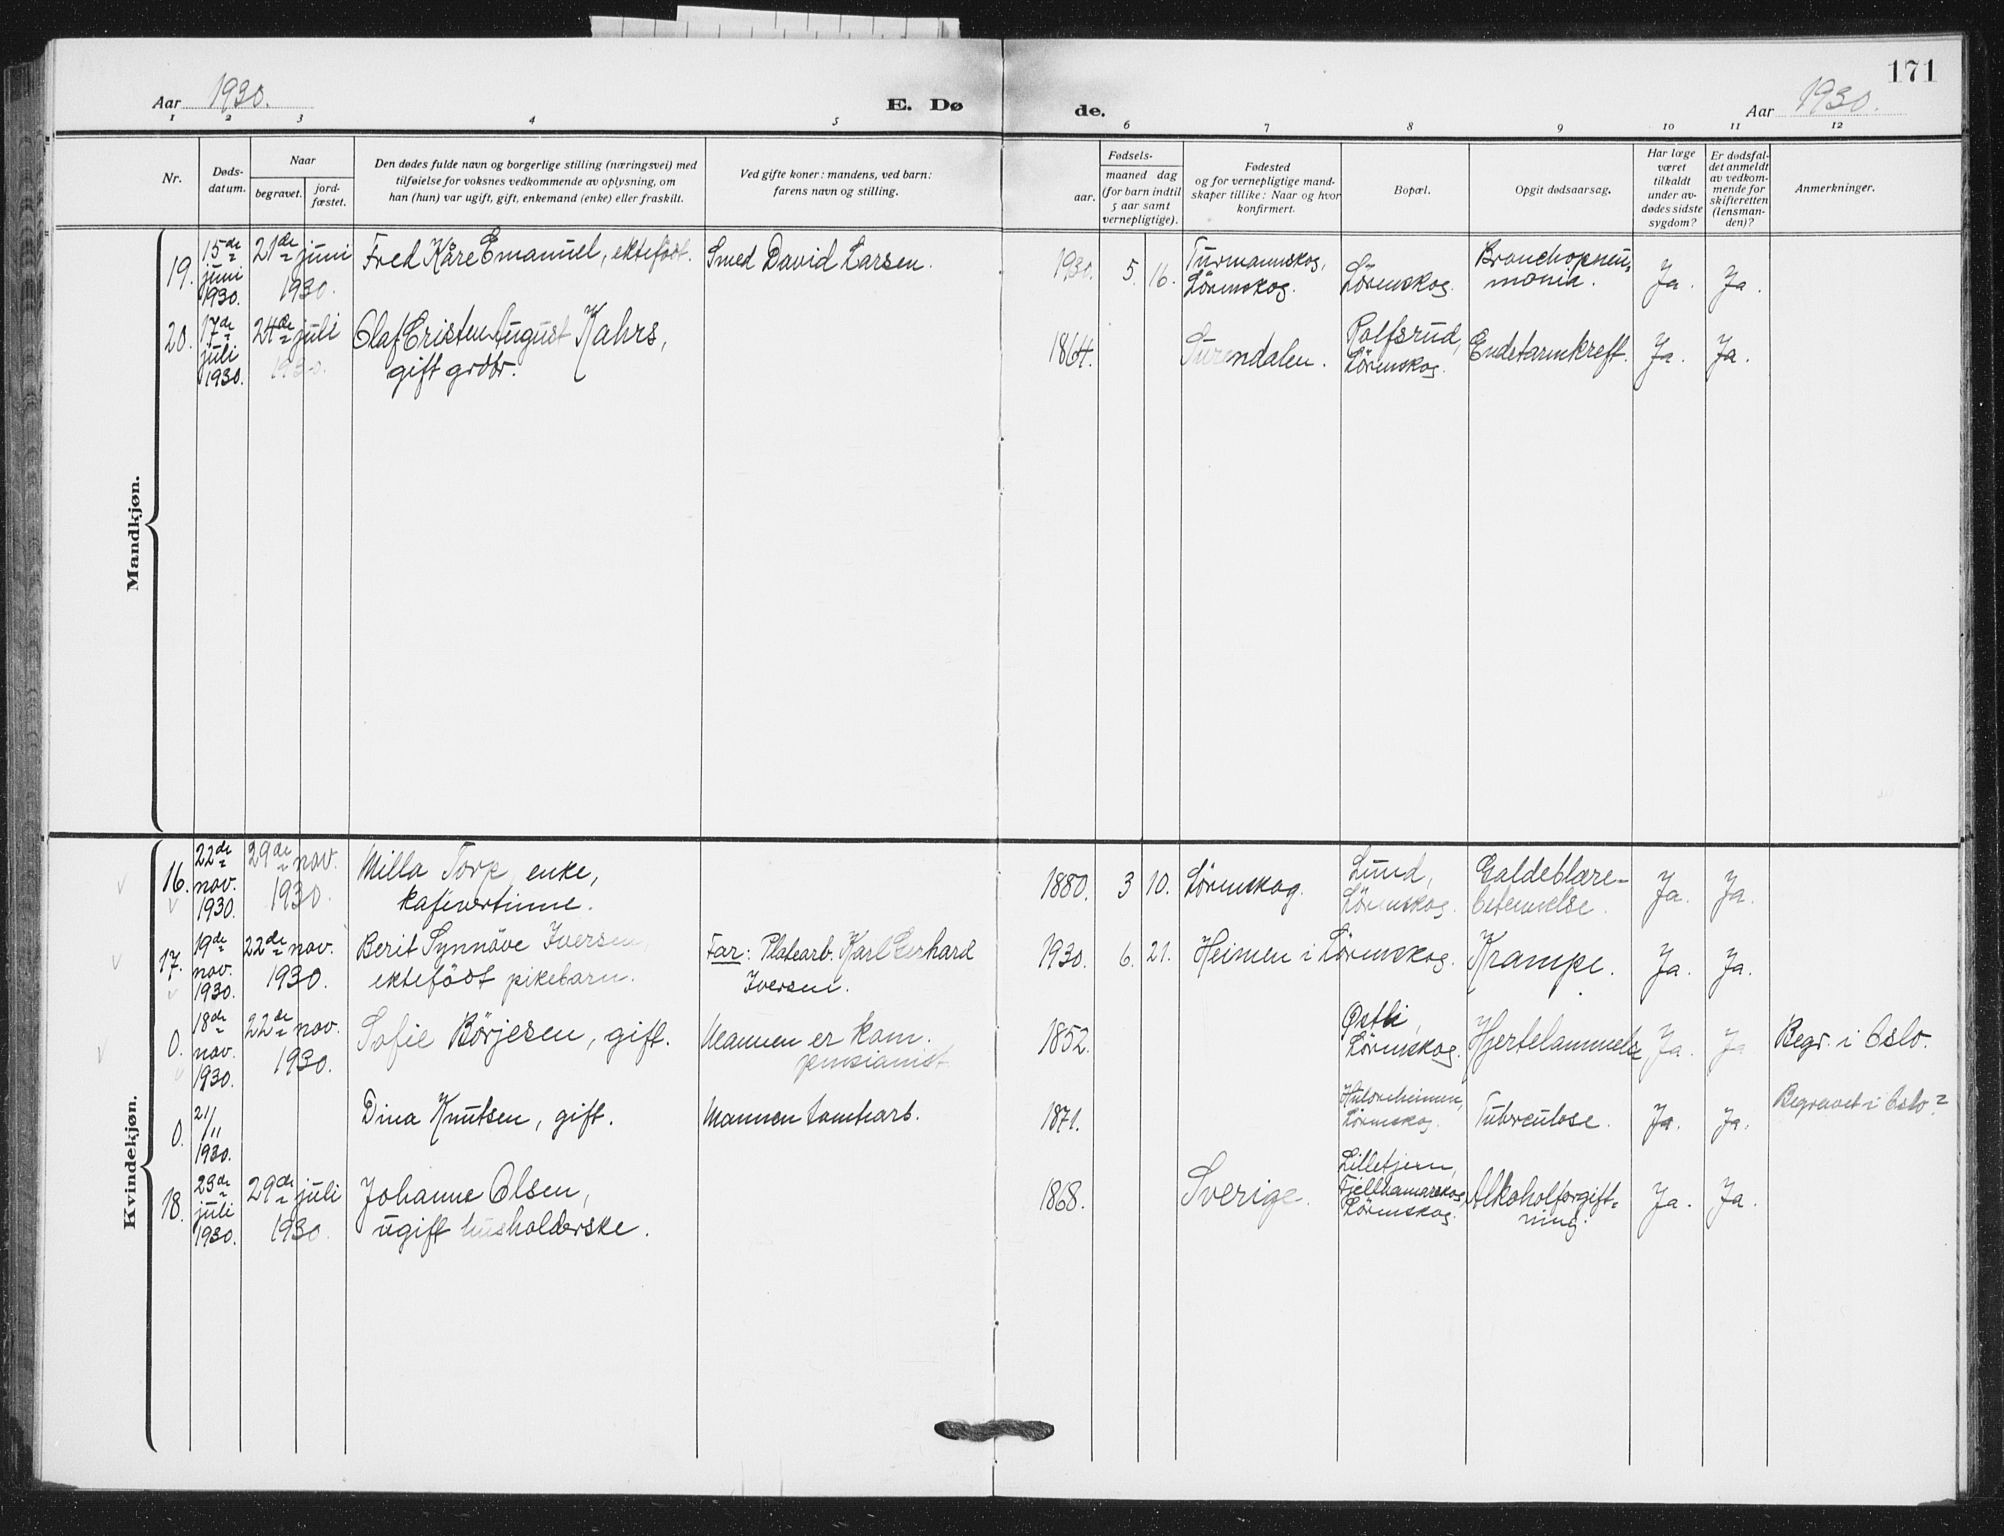 171
Aar 1930.
E. Døde.
Aar 1930.
1 2 3 4 5 6 7 8 9 10 11 12
Nr.
Døds-
datum.
Naar
begravet.
jord-
fæstet.
Den dødes fulde navn og borgerlige stilling (næringsvei) med
tilføielse for voksnes vedkommende av oplysning, om
han (hun) var ugift, gift, enkemand (enke) eller fraskilt.
Ved gifte koner: mandens, ved barn:
farens navn og stilling.
Fødsels-
aar.
maaned dag
(for barn indtil
5 aar samt
vernepligtige).
Fødested
og for vernepligtige mand-
skaper tillike: Naar og hvor
konfirmert.
Bopæl.
Opgit dødsaarsag.
Har læge
været
tilkaldt
under av-
dødes sidste
sygdom?
Er dødsfal-
det anmeldt
av vedkom-
mende for
skifteretten
(lensman-
den)?
Anmerkninger.
Mandkjøn.
19.
15de
juni
1930.
21de juni
1930.
Fred Kåre Emanuel, ektefödt.
Smed David Larsen.
1930. 5. 16.
Turmannskog,
Lørenskog.
Lørenskog.
Bronchopneu-
monia.
Ja. Ja.
20.
17de
juli
1930.
24de juli
1930.
Olaf Cristen August Kahrs,
gift grdbr.
1864.
Rolfsrud,
Lørenskog.
Endetarmkreft.
Ja. Ja.
Kvindekjøn.
16.
22de
nov.
1930.
29de nov.
1930.
Milla Torp, enke,
kafevertinne.
1880. 3 10.
Lørenskog.
Lund,
Lørenskog.
Galdeblære-
betennelse.
Ja. Ja.
17.
19de
nov.
1930.
22de nov.
1930.
Berit Synnöve Iversen,
ektefödt pikebarn.
Far: Platearb. Karl Gerhard
Iversen.
1930. 6. 21.
Heimen i Lørenskog.
Krampe.
Ja. Ja.
0.
18de
nov.
1930.
22de nov.
1930.
Sofie Børjesen, gift.
Mannen er kom.
pensionist
1852.
Østli,
Lørenskog.
Hjertelammelse
Ja. Ja
Begr. i Oslo.
0.
21/11
1930.
Dina Knutsen, gift.
Mannen tomtearb.
1871.
Lørenskog.
Tuberculose.
Ja. Ja.
Begravet i Oslo?
18.
23de
juli
1930.
29de juli
1930.
Johanne Olsen,
ugift husholderske.
1868.
Sverige.
Lilletjern,
Fjellhamarskog,
Lørenskog.
Alkoholforgift-
ning.
Ja. Ja.